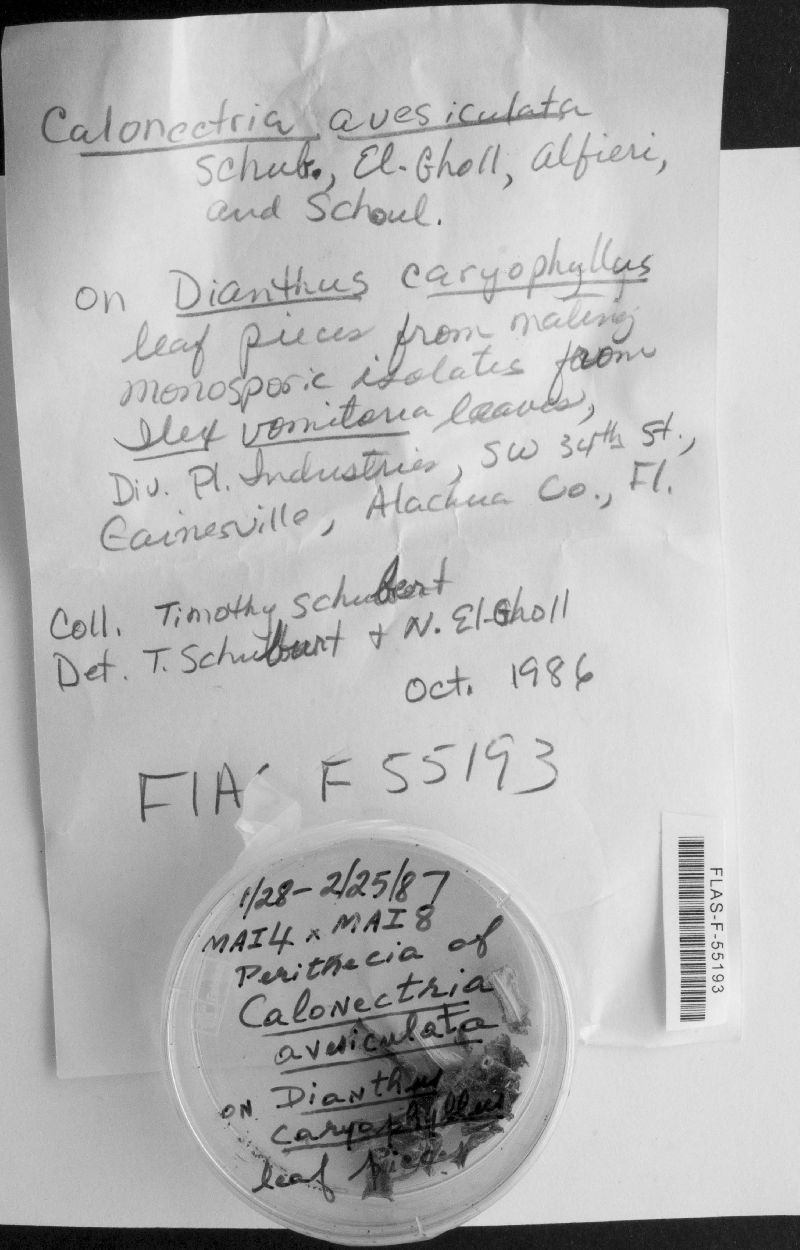 Calonectria avesiculata
Schub., El-Gholl, Alfieri,
and Schoul.
on Dianthus caryophyllus
leaf pieces from mating
monosporic isolates from
Ilex vomitoria leaves,
Div. Pl. Industries, SW 34th St.,
Gainesville, Alachua Co., Fl.
Coll. Timothy Schubert
Det. T. Schubert + N. El-Gholl
Oct. 1986
FLAS F 55193
FLAS-F-55193
1/28-2/25/87
MAI4 x MAI8
Perithecia of
Calonectria
avesiculata
on Dianthus
caryophyllus
leaf pieces